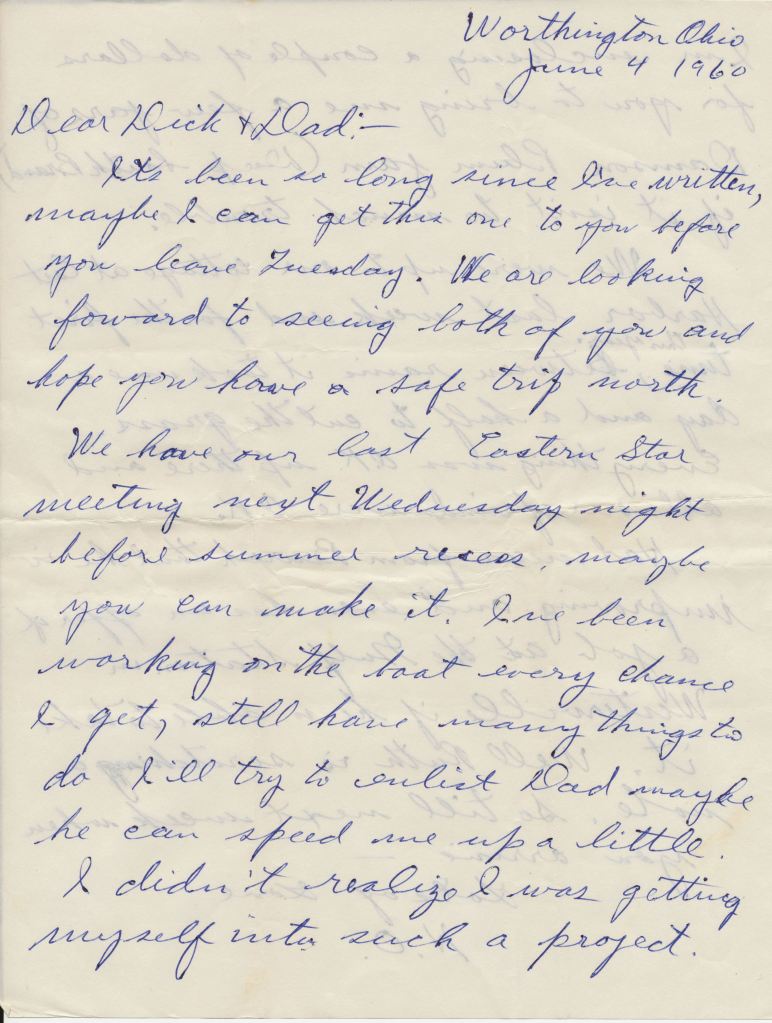 Worthington Ohio
June 4 1960
Dear Dick & Dad:—
Its been so long since I've written,
maybe I can get this one to you before
you leave Tuesday. We are looking
forward to seeing both of you and
hope you have a safe trip north.
We have our last Eastern Star
meeting next Wednesday night
before summer recess, maybe
you can make it. I've been
working on the boat every chance
I get, still have many things to
do I'll try to enlist Dad maybe
he can speed me up a little.
I didn't realize I was getting
myself into such a project.